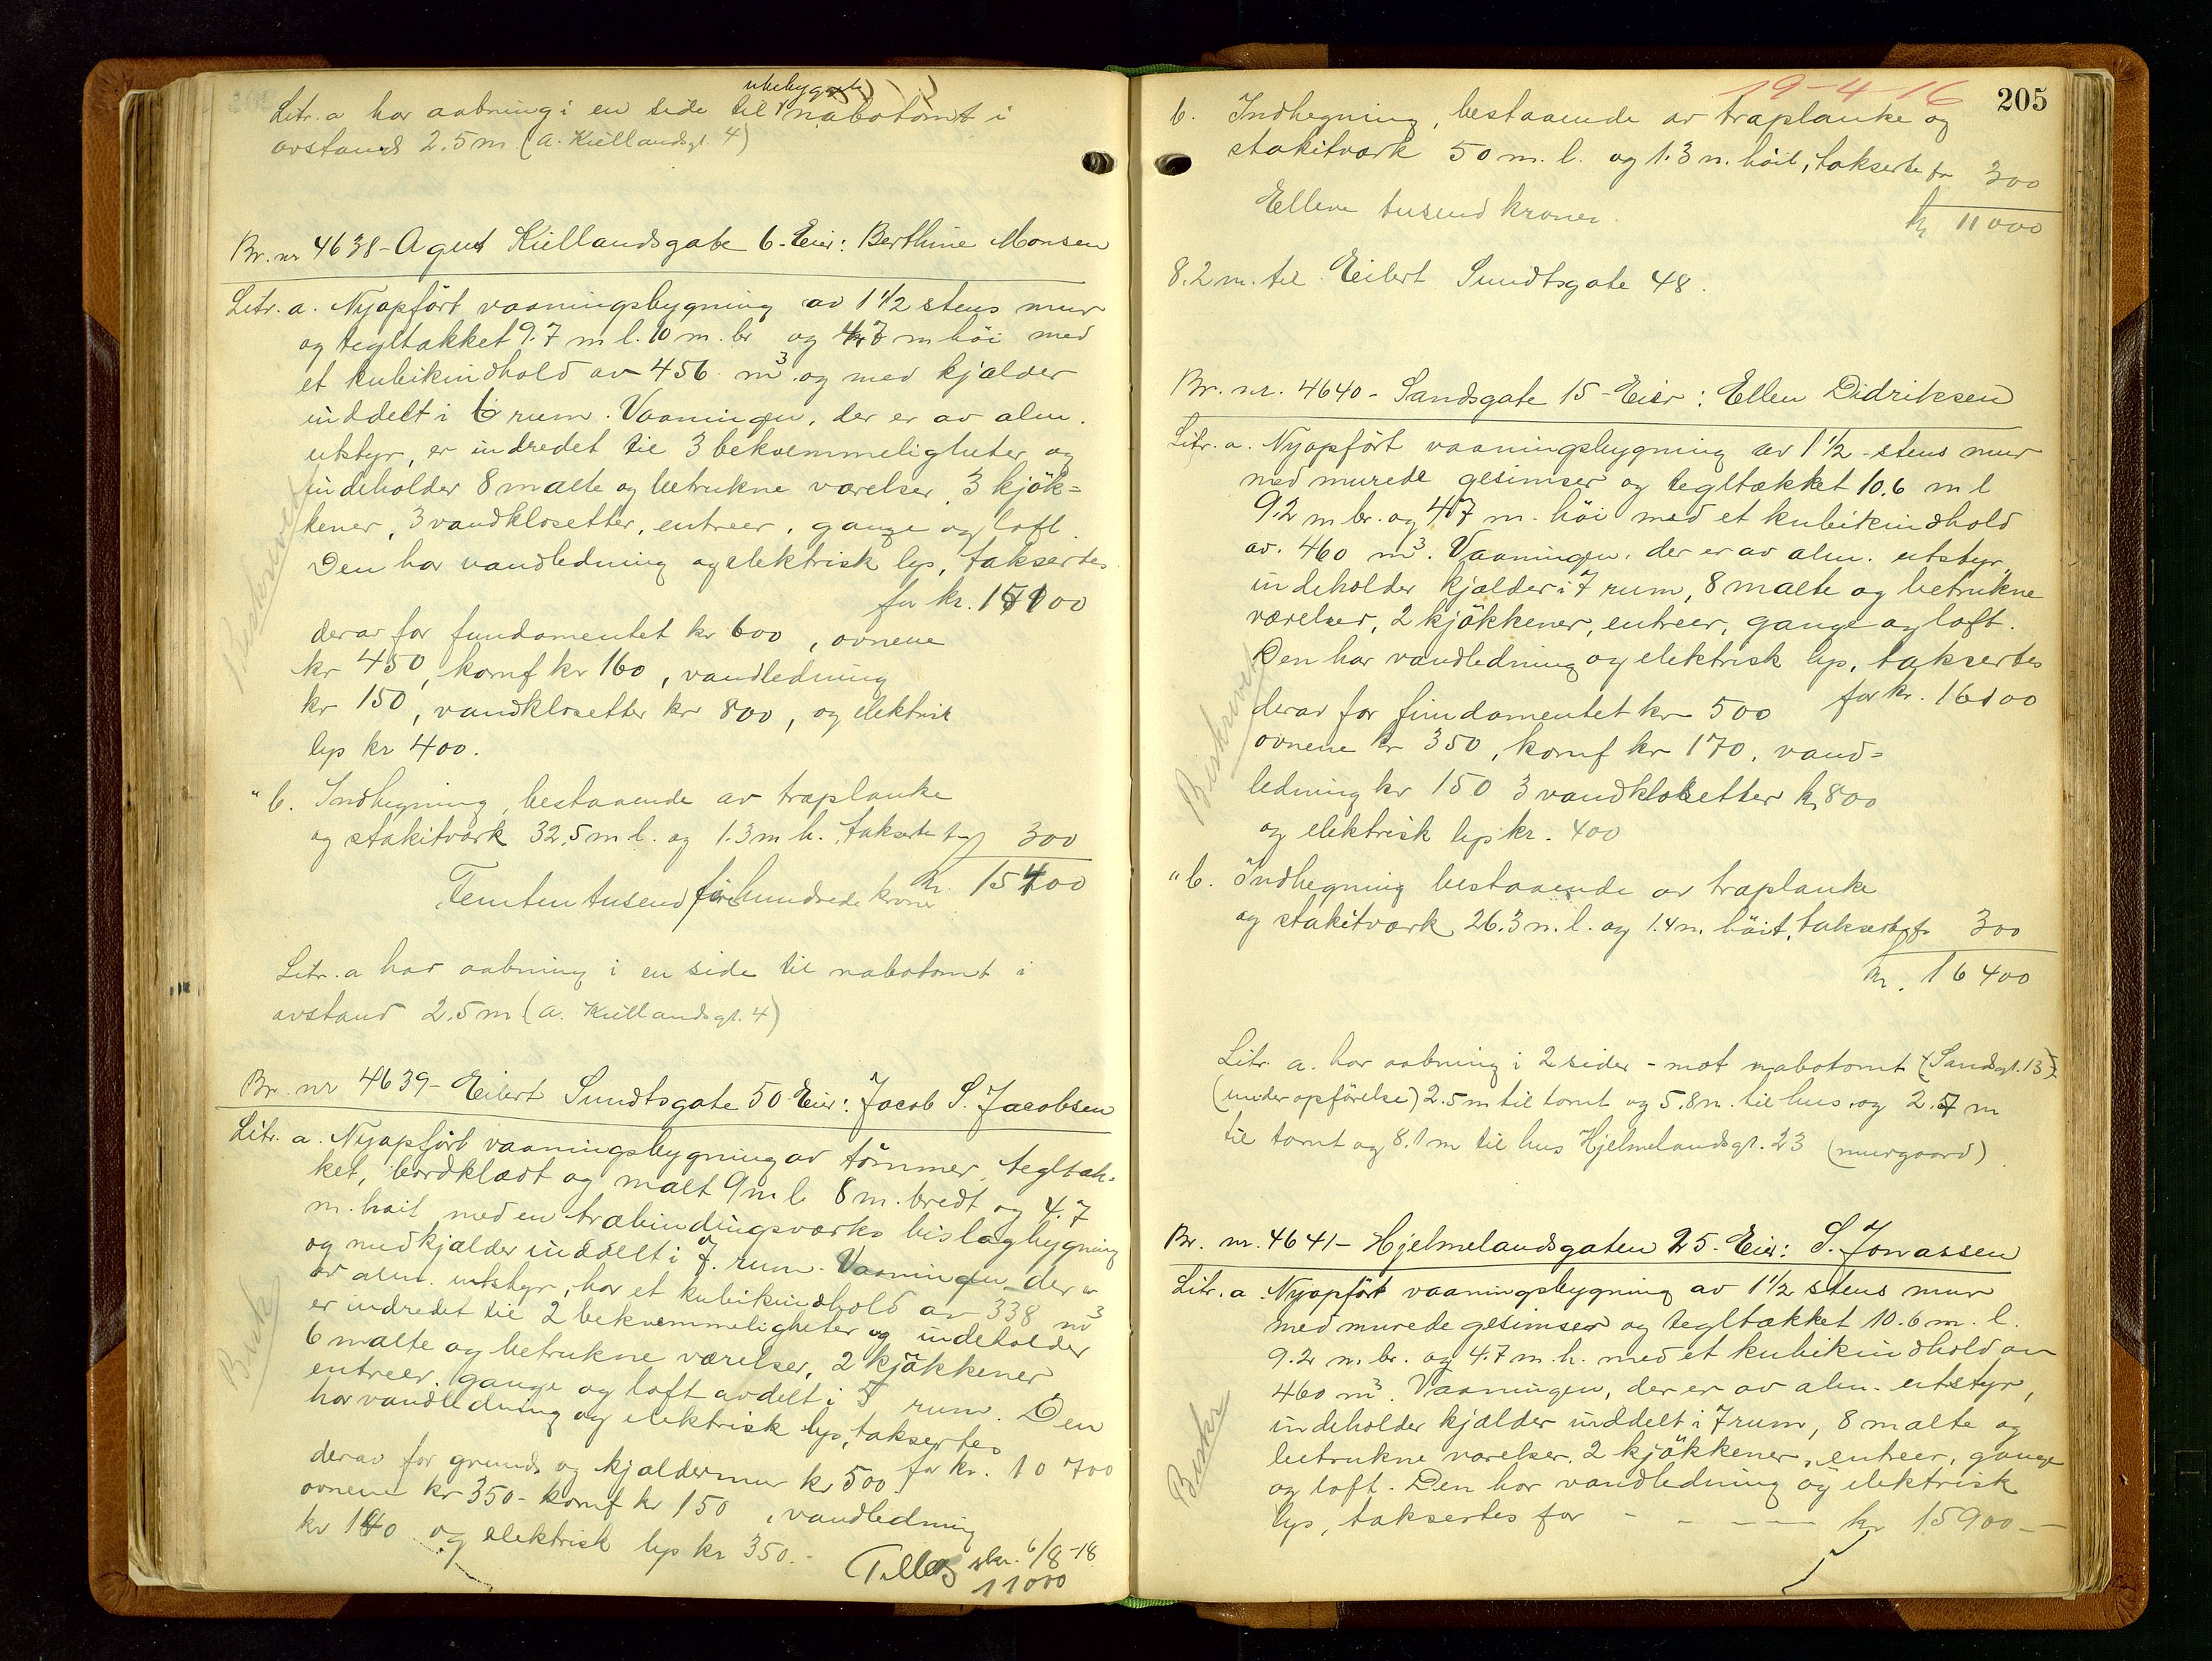 ubebygget
Litr. a har aabning i en side til nabotomt i
avstand 2.5 m (A. Kiellandsgt. 4)
Br. nr 4638 - Agent Kiellandsgate 6 - Eier: Berthine Monsen
Litr. a. Nyopført vaaningsbygning av 1 1/2 stens mur
og tegltækket 9.7 m l. 10 m. br og 4.7 m høi med
et kubikindhold av 456 m³ og med kjælder
inddelt i 6 rum. Vaaningen, der er av alm.
utstyr, er indredet til 3 bekvemmeligheter og
indeholder 8 malte og betrukne værelser, 3 kjøk=
kener, 3 vandklosetter, entreer, gange og loft.
Den har vandledning og elektrisk lys, taksertes
for kr. 15100
derav for fundamentet kr 600, ovnene
kr 450, komf kr 160, vandledning
kr 150, vandklosetter kr 800, og elektrisk
lys kr 400.
Beskrevet
" b. Indhegning, bestaaende av træplanke
og stakitværk 32,5 m l. og 1.3 m h. taksertes for 300
kr. 15400
Femten tusend fire hundrede kroner
Litr. a har aabning i en side til nabotomt i
avstand 2.5 m (A. Kiellandsgt. 4)
Br. nr 4639 - Eilert Sundtsgate 50 - Eier: Jacob S. Jacobsen
Litr. a. Nyopført vaaningsbygning av tømmer, tegltæk-
ket, bordklædt og malt 9 m l. 8 m. bredt og 4.7
m. høit med en træbindingsværks bislagbygning
og med kjælder inddelt i 7 rum. Vaaningen der er
av alm. utstyr, har et kubikindhold av 338 m³
er indredet til 2 bekvemmeligheter og indeholder
6 malte og betrukne værelser, 2 kjøkkener
entreer, gange og loft avdelt i 5 rum. Den
har vandledning og elektrisk lys, taksertes
for kr. 10 700
derav for grunds og kjældermur kr 500
ovnene kr 350 - komf kr 150, vandledning
kr 140 og elektrisk lys kr 350.-
Besk
Tillæg skr. 6/8-18
11000
19-4-16
205
b. Indhegning, bestaaende av træplanke og
stakitværk 50 m. l. og 1.3 m. høit, taksertes for 300
kr 11000
Elleve tusend kroner.
8.2 m. til Eilert Sundtsgate 48.
Br. nr. 4640 - Sandsgate 15 - Eier: Ellen Didriksen
Litr. a. Nyopført vaaningsbygning av 1 1/2 - stens mur
med murede gesimser og tegltækket 10.6 m l
9.2 m br. og 4.7 m. høi med et kubikindhold
av. 460 m³. Vaaningen, der er av alm. utstyr,
indeholder kjælder i 7 rum, 8 malte og betrukne
værelser, 2 kjøkkener, entreer, gange og loft.
Den har vandledning og elektrisk lys, taksertes
for kr. 16100
derav for fundamentet kr 500
ovnene kr 350, komf kr 170, vand=
ledning kr 150 3 vandklosetter kr 800
og elektrisk lys kr. 400
Beskrevet
" b. Indhegning bestaaende av træplanke
og stakitværk 26.3 m. l. og 1.4 m. høit, taksertes for 300
kr. 16 400
Litr. a. har aabning i 2 sider - mot nabotomt (Sandsgt. 13)
(under opførelse) 2.5 m til tomt og 5.8 m. til hus. og 2.7 m
til tomt og 8.1 m til hus Hjelmelandsgt. 23 (murgaard).
Br. nr. 4641 - Hjelmelandsgaten 25. Eier: S. Jonassen
Litr. a. Nyopført vaaningsbygning av 1 1/2 stens mur
med murede gesimser og tegltækket 10.6 m. l.
9.2 m. br. og 4.7 m. h. med et kubikindhold av
460 m³. Vaaningen, der er av alm. utstyr,
indeholder kjælder inddelt i 7 rum, 8 malte og
betrukne værelser, 2 kjøkkener, entreer, gange
og loft. Den har vandledning og elektrisk
lys, taksertes for - - - - kr 15900 -
Beskr